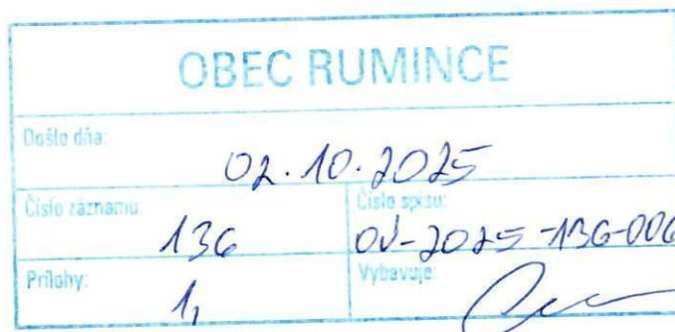 OBEC RUMINCE
Došlo dňa:
02.10.2025
Číslo záznamu:
136
Číslo spisu:
OÚ-2025-136-006
Prílohy:
1,
Vybavuje: